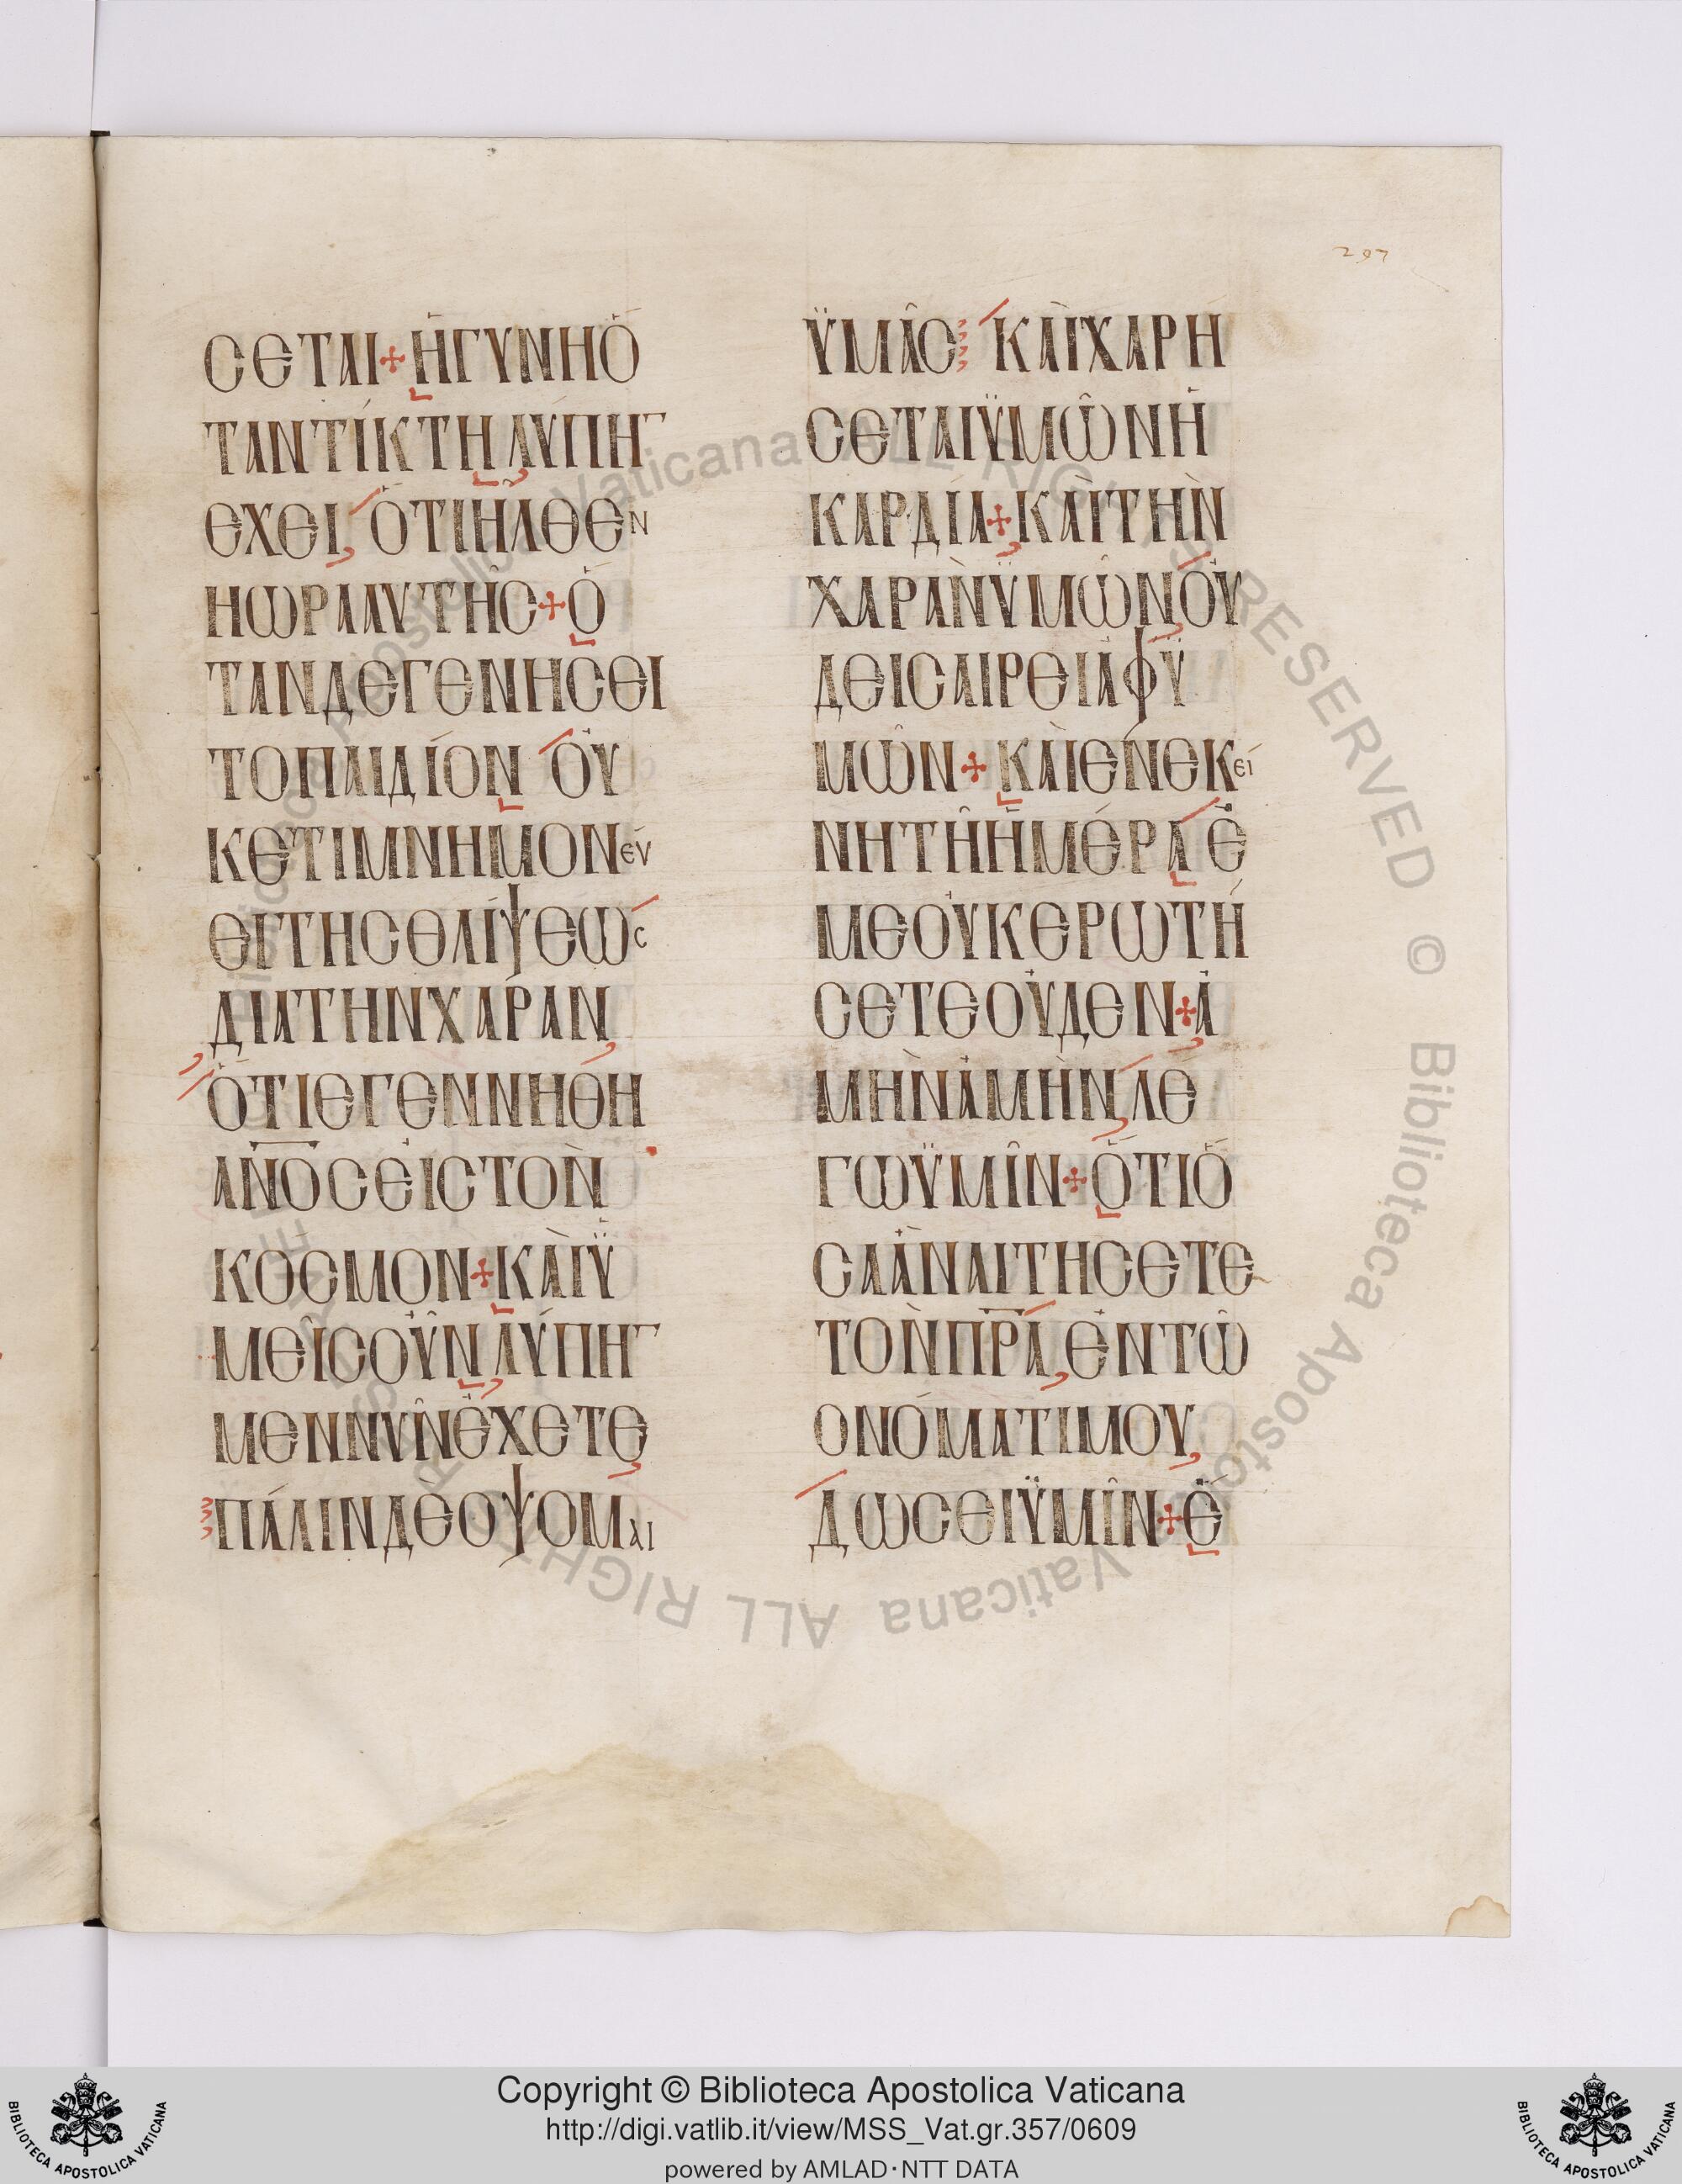 297
ϹΕΤΑΙ+ἩΓΥΝΗὍ
ΤΑΝΤΊΚΤΗΛΎΠΗ
ΕΧΕΙ, ὉΤΙΗΛΘΕΝ
ΗΩΡΑΑΥΤΗϹ+Ὅ
ΤΑΝΔΕΓΕΝΗϹΕΙ
ΤΟΠΑΙΔΊΟΝ ΟΥ̓
ΚΕΤΙΜΝΗΜΟΝΕΎ
ΕΙΤΗϹΘΛΊΨΕΩϹ
ΔΙΑΤΗΝΧΑΡΑΝ,
ὉΤΙΕΓΕΝΝΗΘΗ
ΑΝ̅Ο̅ϹΕἸϹΤΟῸΝ
ΚΟϹΜΟΝ+ΚΑῚΫ
ΜΕΙ͂ϹΟΥ͂ΝΛΎΠΗ
ΜΕΝΝΥΝΕΧΕΤΕ,
ΠΆΛΙΝΔΕΟΨΟΜΑΙ
ΫΜΑ͂Ϲ ΚΑῚΧΑΡΗ
ϹΕΤΑΙΫΜΩ͂ΝἩ
ΚΑΡΔΊΑ+ΚΑῚΤῊΝ
ΧΑΡᾺΝΫΜΩ͂ΝΟΥ̓
ΔΕΙϹΑΙΡΕΙἈΦΫ
ΜΩ͂Ν+ΚΑῚἘΝΕΚΕΊ
ΝΗΤΗ͂ΗΜΈΡΑ Ἐ
ΜΕΟΥ̓ΚΕΡΩΤΉ
ϹΕΤΕΟΥ̓ΔΕΝ+Ἀ
ΜῊΝἈΜῊΝ,ΛΕ
ΓΩΫΜΙ͂Ν+ὍΤΙὍ
ϹΑἊΝΑΙΤΗϹΕΤΕ
ΤῸΝΠ̅Ρ̅Α̅,ἘΝΤΩ͂
ΟΝΌΜΑΤΙΜΟΥ,
ΔΩϹΕΙΫΜΙ͂Ν+Ἕ
Copyright © Biblioteca Apostolica Vaticana
http://digi.vatlib.it/view/MSS_Vat.gr.357/0609
powered by AMLAD・NTT DATA
BIBLIOTECA APOSTOLICA VATICANA
BIBLIOTECA APOSTOLICA VATICANA